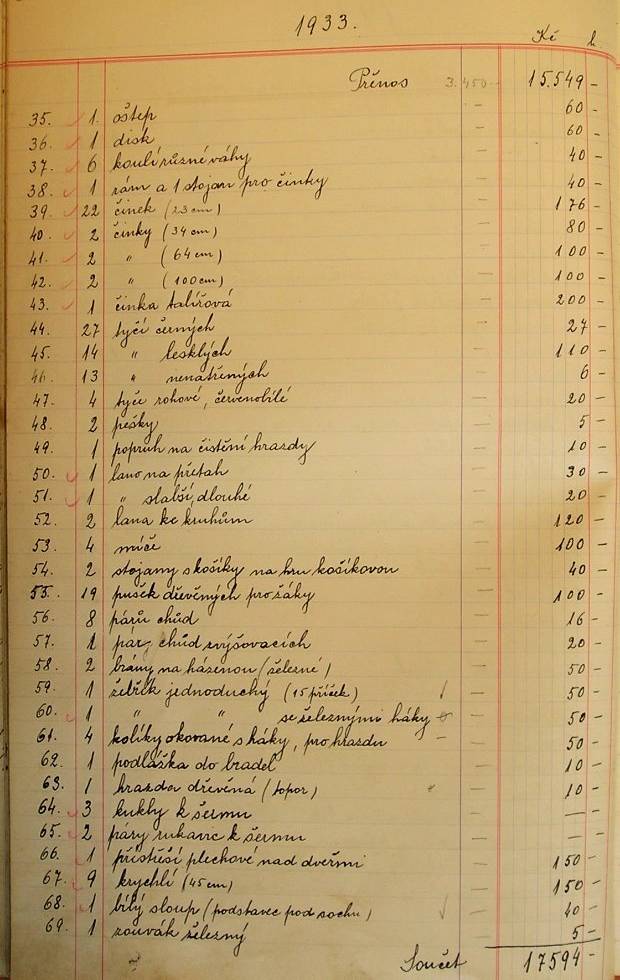 1933.
Kč h
Přenos 3.450 — 15.549 —
35. 1 oštep — 60 —
36. 1 disk — 60 —
37. 6 koulí různé váhy — 40 —
38. 1 rám a 1 stojan pro činky — 40 —
39. 22 činek (23 cm) — 176 —
40. 2 činky (34 cm) — 80 —
41. 2 " (64 cm) — 100 —
42. 2 " (100 cm) — 100 —
43. 1 činka talířová — 200 —
44. 27 tyčí černých — 27 —
45. 14 " lesklých — 110 —
46. 13 " nenatřených — 6 —
47. 4 tyče rohové, červenobílé — 20 —
48. 2 pešky — 5 —
49. 1 popruh na čistění hrazdy — 10 —
50. 1 lano na přetah — 30 —
51. 1 " slabší, dlouhé — 20 —
52. 2 lana ke kruhům — 120 —
53. 4 míče — 100 —
54. 2 stojany s košíky na hru košíkovou — 40 —
55. 19 pušek dřevěných pro žáky — 100 —
56. 8 párů chůd — 16 —
57. 1 pár chůd zvyšovacích — 20 —
58. 2 brány na házenou (železné) — 50 —
59. 1 žebřík jednoduchý (15 příček) 50 —
60. 1 " " se železnými háky 50 —
61. 4 kolíky okované s háky, pro hrazdu — 50 —
62. 1 podlážka do bradel — 10 —
63. 1 hrazda dřevěná (topor) " — 10 —
64. 3 kukly k šermu — — —
65. 2 páry rukavic k šermu — — —
66. 1 přístřeší plechové nad dveřmi — 150 —
67. 9 krychlí (45 cm) — 150 —
68. 1 bílý sloup (podstavec pod sochu) — 40 —
69. 1 zouvák železný — 5 —
Součet 17594 —